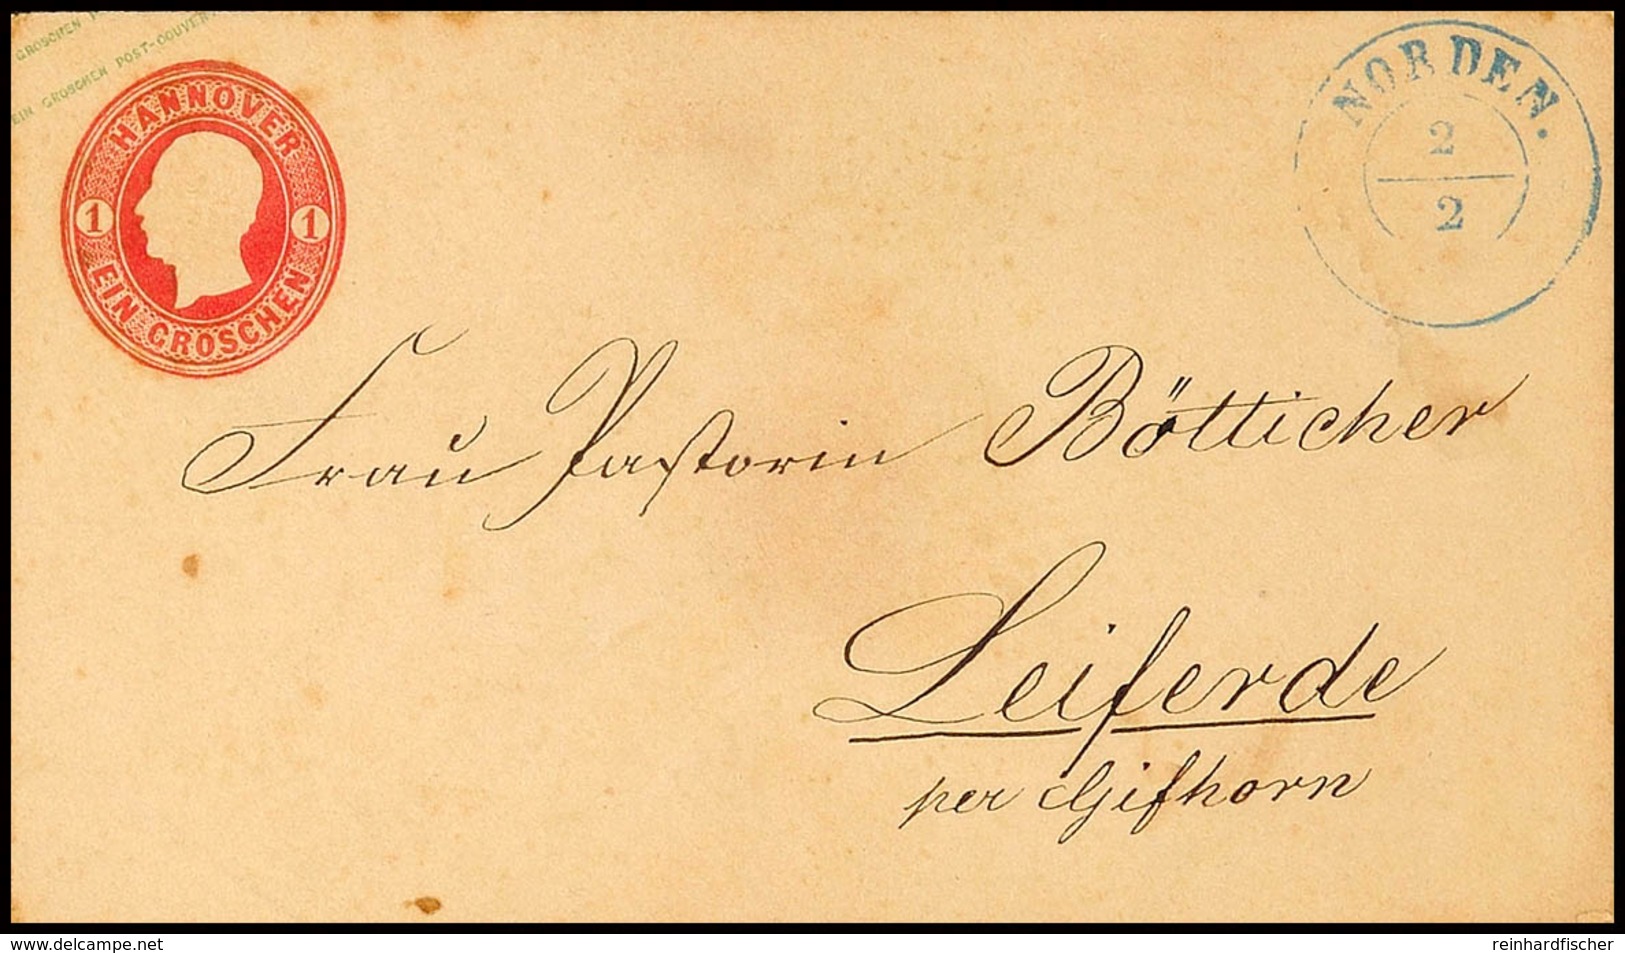 GROSCHEN
EIN GROSCHEN POST-COUVERT
HANNOVER
1 1
EIN GROSCHEN
NORDEN.
2
2
Frau Pastorin Bötticher
Leiferde
per Gifhorn
www.delcampe.net
reinhardfischer